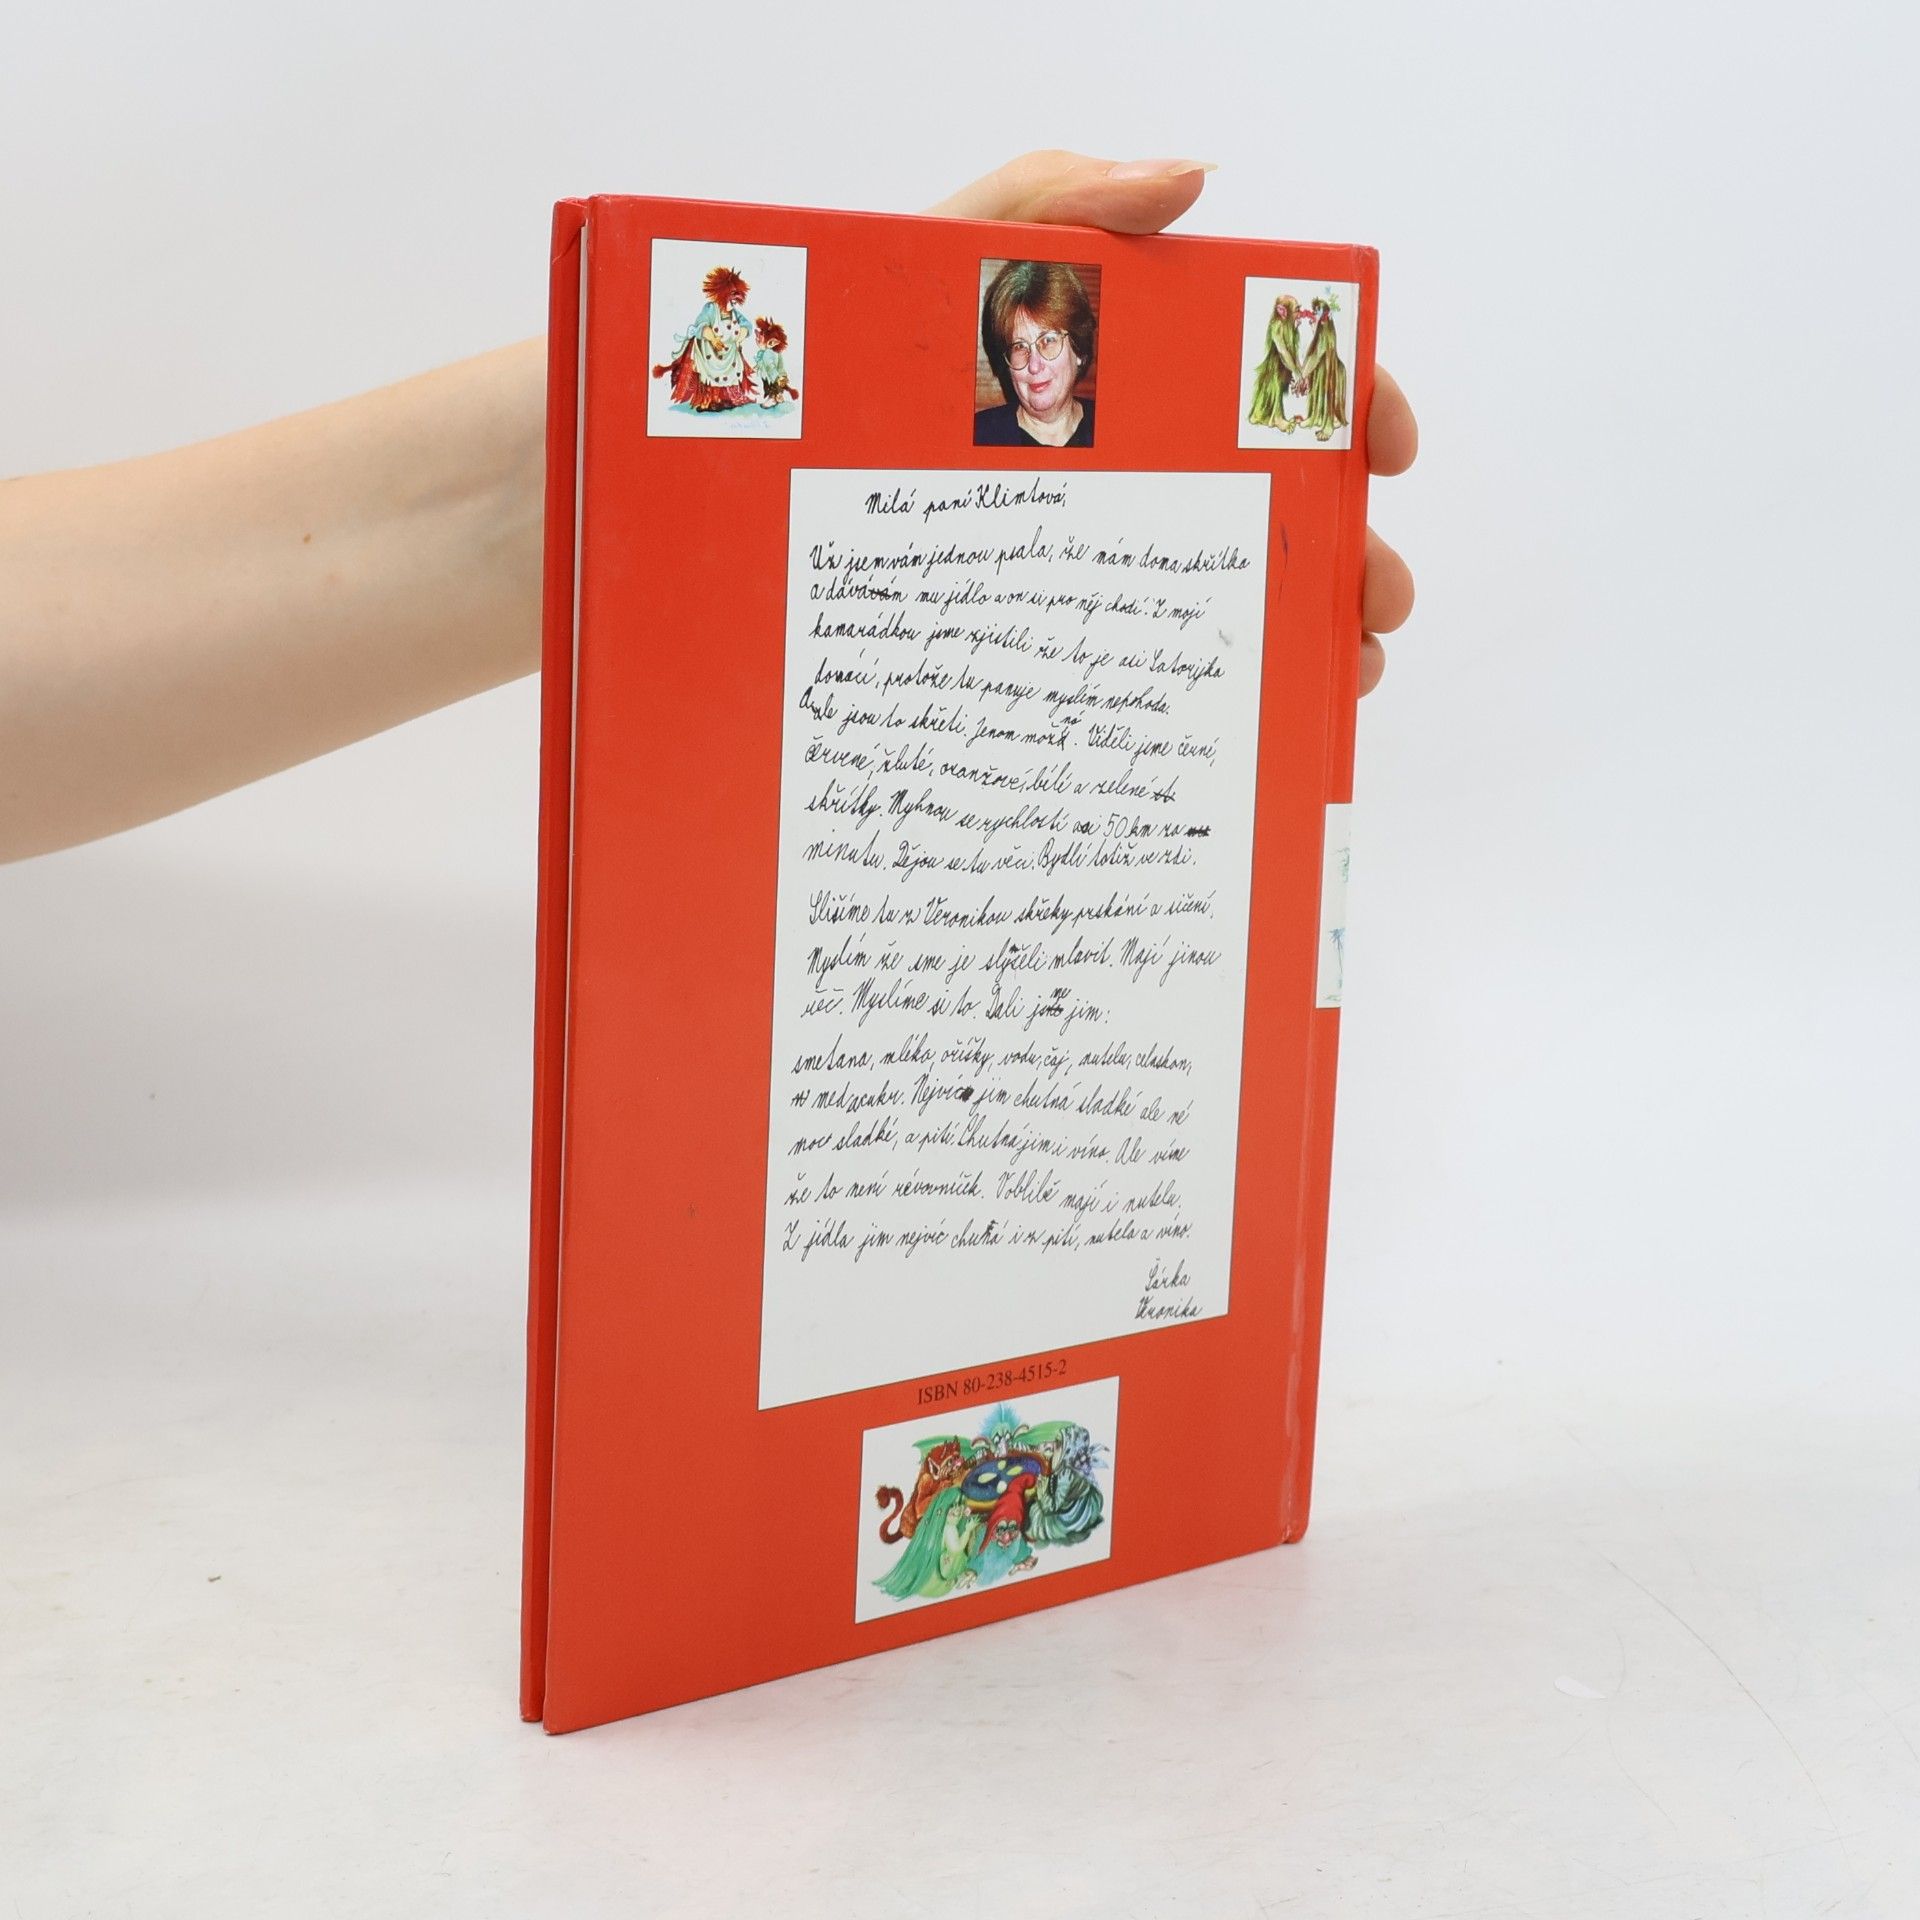 Milá paní Klimtová,
Už jsem vám jednou psala, že mám doma skřítka
a dávávám mu jídlo a on si pro něj chodí. Z mojí
kamarádkou jsme zjistili že to je asi Satorijka
domácí, protože tu panuje myslím nepohoda.
ale jsou to skřeti. Jenom možná. Viděli jsme černé,
červené, žluté, oranžové, bílí a zelené
skřítky. Myhnou se rychlostí asi 50 km za
minutu. Dějou se tu věci. Bydlí totiž ve zdi.
Slišíme tu z Veronikou skřeky prskání a sičení.
Myslím že sme je slyšeli mluvit. Mají jinou
řeč. Myslíme si to. Dali jsme jim:
smetana, mléko, oříšky, vodu, čaj, nutelu, celaskon,
med a cukr. Nejvíc jim chutná sladké ale né
moc sladké, a pití. Chutná jim i víno. Ale víme
že to není révovníček. Voblibě mají i nutelu.
Z jídla jim nejvíc chutná i z pití, nutela a víno.
Šárka
Veronika
ISBN 80-238-4515-2